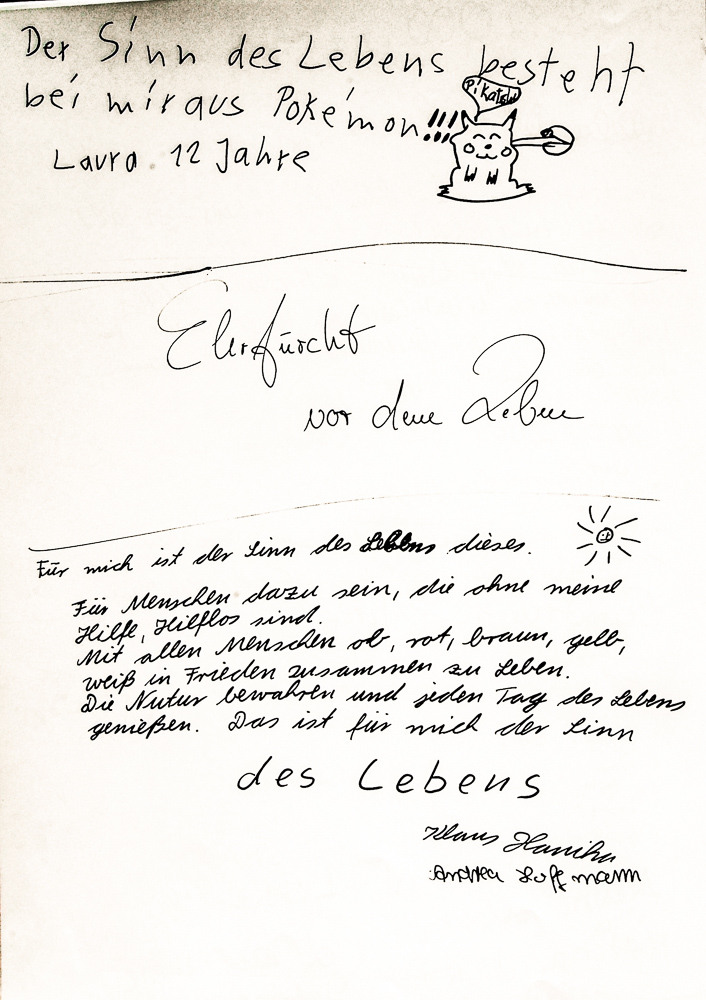 Der Sinn des Lebens besteht
bei mir aus Pokémon!!!!
Pikatshu
Laura 12 Jahre
Ehrfurcht
vor dem Leben
Für mich ist der Sinn des Lebens dieses.
Für Menschen dazu sein, die ohne meine
Hilfe, Hilflos sind.
Mit allen Menschen ob, rot, braun, gelb,
weiß in Frieden zusammen zu Leben.
Die Nutur bewahren und jeden Tag des Lebens
genießen. Das ist für mich der Sinn
des Lebens
Klaus
Andrea Hoffmann